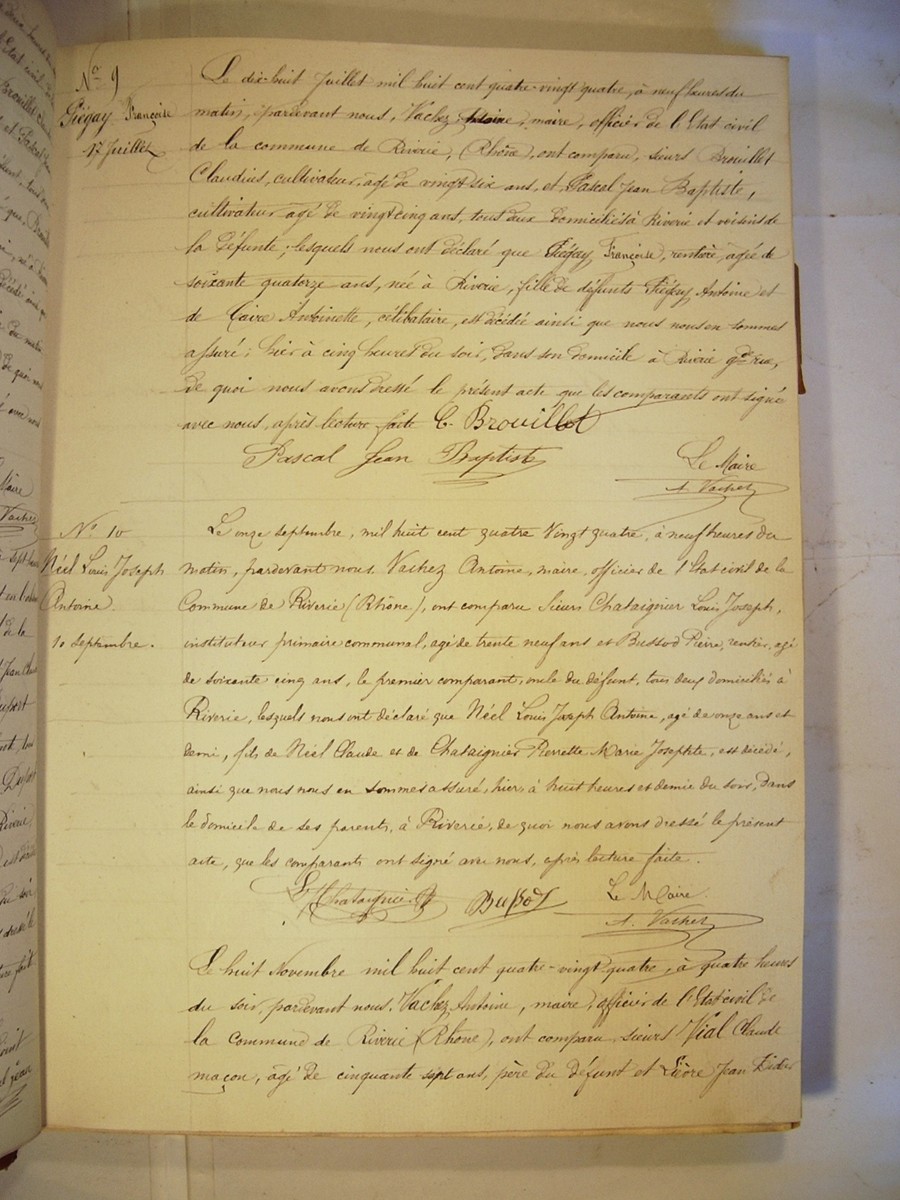 No 9
Piégay Françoise
17 Juillet
Le dix-huit Juillet mil huit cent quatre-vingt quatre, à neuf heures du
matin, pardevant nous, Vachez Antoine, maire, officier de l'Etat civil
de la commune de Riverie, (Rhône), ont comparu, sieurs Brouillet
Claudius, cultivateur, agé de vingt six ans, et, Pascal Jean Baptiste,
cultivateur agé de vingt cinq ans, tous deux domiciliés à Riverie et voisins de
la défunte, lesquels nous ont déclaré que Piégay Françoise, rentière, agée de
soixante quatorze ans, née à Riverie, fille de défunts Piégay Antoine et
de Caire Antoinette, célibataire, est décédée ainsi que nous nous en sommes
assuré, hier à cinq heures du soir, dans son domicile à Riverie gde rue,
de quoi nous avons dressé le présent acte que les comparants ont signé
avec nous, après lecture faite C. Brouillet
Pascal Jean Baptiste
Le Maire
A. Vachez
No 10
Néel Louis Joseph
Antoine.
10 Septembre.
Le onze septembre, mil huit cent quatre Vingt quatre, à neuf heures du
matin, pardevant nous Vachez Antoine, maire, officier de l'Etat civil de la
Commune de Riverie (Rhône), ont comparu Sieurs Chataignier Louis Joseph,
instituteur primaire communal, agé de trente neuf ans et Bussod Pierre, rentier, agé
de soixante cinq ans, le premier comparant, oncle du défunt, tous deux domiciliés à
Riverie, lesquels nous ont déclaré que Néel Louis Joseph Antoine, agé de onze ans et
demi, fils de Néel Claude et de Chataignier Pierrette Marie Josephte, est décédé,
ainsi que nous nous en sommes assuré, hier, à huit heures et demie du soir, dans
le domicile de ses parents, à Riverie, de quoi nous avons dressé le présent
acte, que les comparants ont signé avec nous, après lecture faite.
L J Chataignier
Bussod
Le Maire.
A. Vachez
Le huit Novembre mil huit cent quatre-vingt quatre, à quatre heures
du soir, pardevant nous, Vachez Antoine, maire, officier de l'Etat civil de
la commune de Riverie (Rhône), ont comparu, sieurs Vial Claude
maçon, agé de cinquante sept ans, père du défunt et Jean